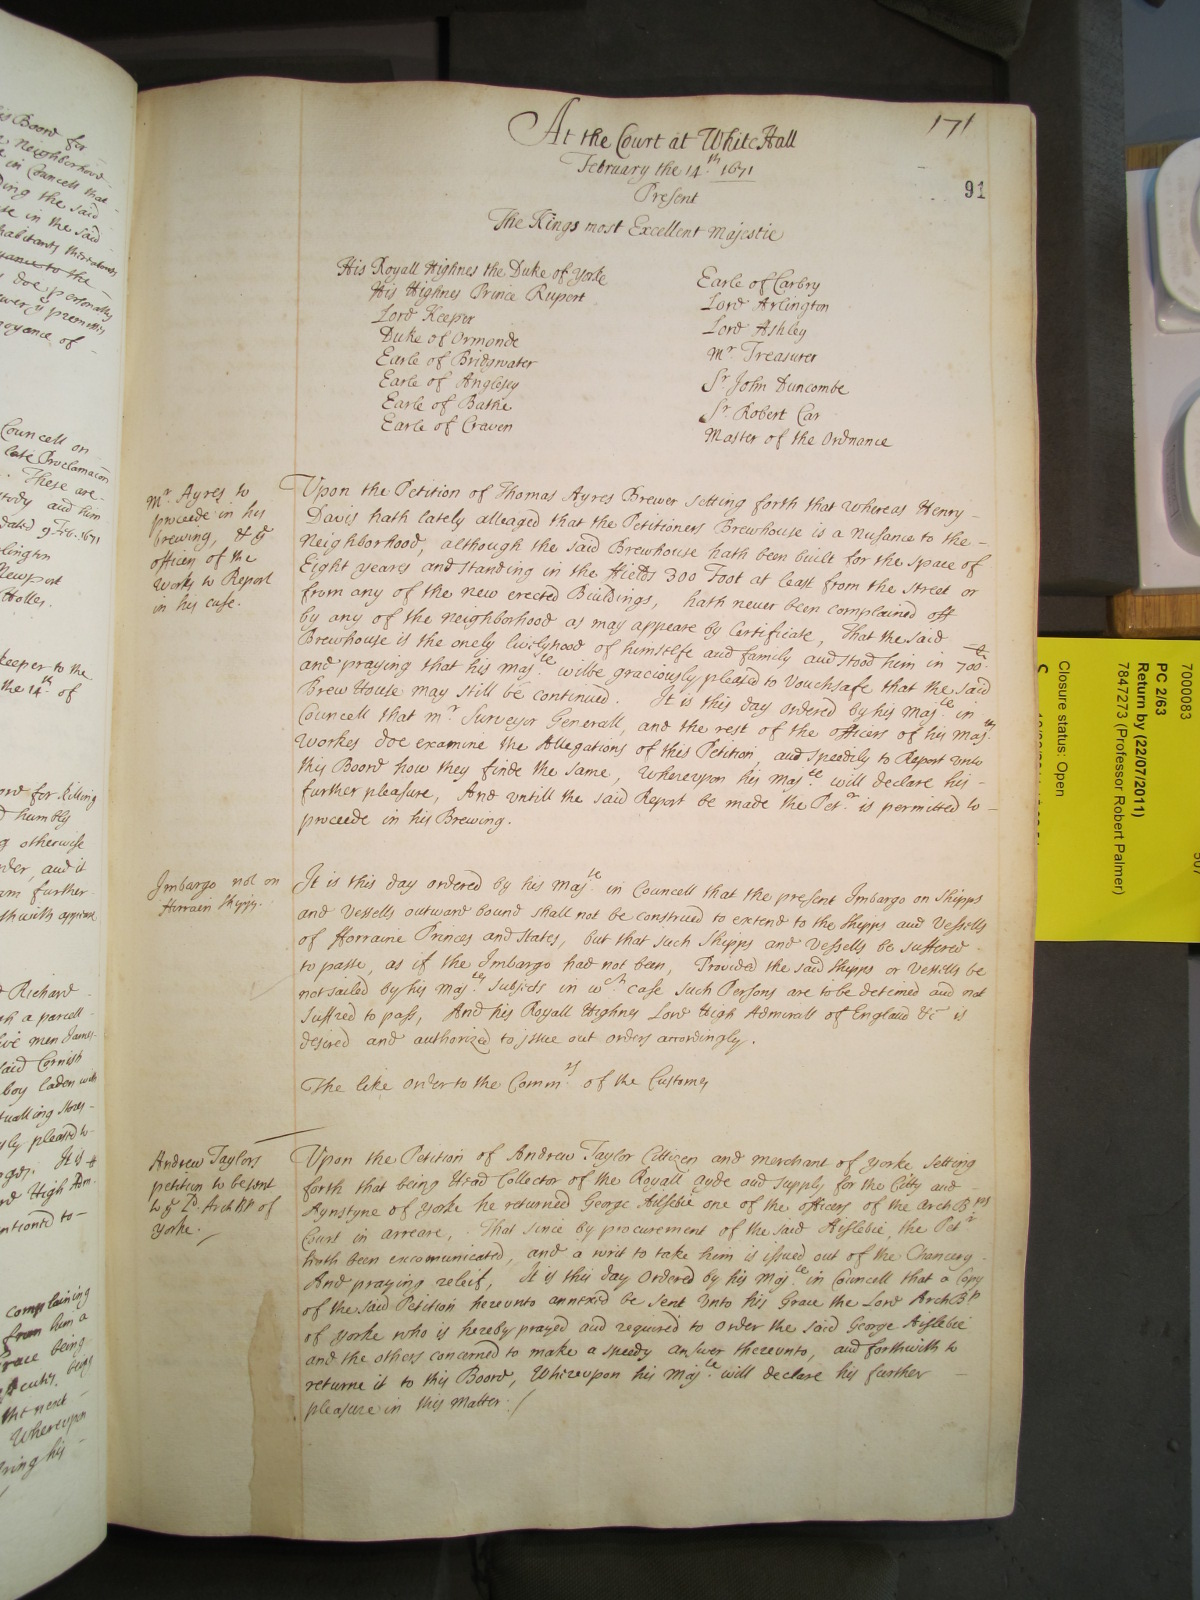 171
At the Court at WhiteHall
February the 14th 1671
91
Present
The Kings most Excellent Majestie
His Royall Highnes the Duke of Yorke
His Highnes Prince Rupert
Lord Keeper
Duke of Ormonde
Earle of Bridgwater
Earle of Anglesey
Earle of Bathe
Earle of Craven
Earle of Carbry
Lord Arlington
Lord Ashley
Mr Treasurer
Sr John Duncombe
Sr Robert Car
Master of the Ordnance
Mr Ayres to
proceede in his
brewing, & ye
officers of the
Works to Report
in his case.
Upon the Petition of Thomas Ayres Brewer setting forth that Whereas Henry
Davis hath lately alleaged that the Petitioners Brewhouse is a Nusance to the
Neighborhood, although the said Brewhouse hath been built for the space of
Eight yeares and standing in the ffields 300 Foot at least from the street or
from any of the new erected Buildings, hath never been complained off
by any of the neighborhood as may appeare by Certificate, That the said
Brewhouse is the onely livelyhood of himselfe and family and stood him in 700li
and praying that his Majte wilbe graciously pleased to vouchsafe that the said
Brew House may still be continued. It is this day ordered by his Majte in
Councell that Mr Surveyor Generall, and the rest of the officers of his Majts
Workes doe examine the Allegations of this Petition, and speedily to Report unto
this Board how they finde the same, Whereupon his Majte will declare his
further pleasure, And untill the said Report be made the Petr is permitted to
proceede in his Brewing.
Imbargo not on
fforrain Shipps.
It is this day ordered by his Majte in Councell that the present Imbargo on Shipps
and Vessells outward bound shall not be construed to extend to the Shipps and Vessells
of fforraine Princes and States, but that such Shipps and Vessells be suffered
to passe, as if the Imbargo had not been, Provided the said Shipps or Vessells be
not sailed by his Majts Subjects in wch case such Persons are to be deteined and not
suffred to pass, And his Royall Highnes Lord High Admirall of England &c is
desired and authorized to issue out orders accordingly.
The like order to the Commrs of the Customes
Andrew Taylors
petition to be sent
to ye Ld ArchBp of
Yorke.
Upon the Petition of Andrew Taylor Cittizen and merchant of Yorke setting
forth that being Head Collector of the Royall ayde and supply for the Citty and
Aynstyne of Yorke he returned George Aislebie one of the officers of the ArchBpps
Court in arreare, That since by procurement of the said Aislebie, the Petr
hath been excomunicated, and a writ to take him is issued out of the Chancery
And praying releif, It is this day Ordered by his Majte in Councell that a Copy
of the said Petition hereunto annexed be sent Unto his Grace the Lord ArchBp
of Yorke who is hereby prayed and required to order the said George Aislebie
and the others concerned to make a speedy answer thereunto, and forthwith to
returne it to this Board, Whereupon his Majte will declare his further
pleasure in this Matter.
7000083
PC 2/63
Return by (22/07/2011)
7847273 (Professor Robert Palmer)
Closure status: Open